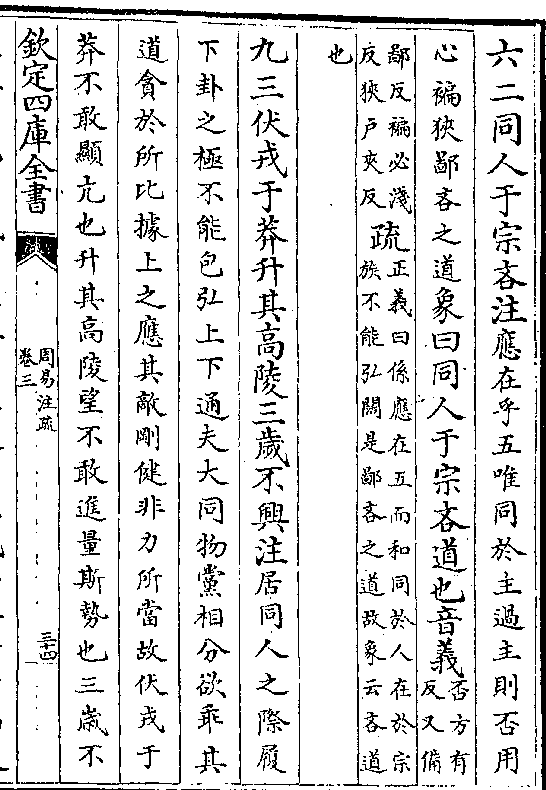 六二同人于宗吝注應在乎五唯同於主過主則否用
心褊狹鄙吝之道象曰同人于宗吝道也音義否方有反又備
鄙反褊必淺反狹戶夾反疏正義曰係應在五而和同於人在於宗族不能弘闊是鄙吝之道故象云吝道
也
九三伏戎于莽升其高陵三歲不興注居同人之際履
下卦之極不能包弘上下通夫大同物黨相分欲乖其
道貪於所比據上之應其敵剛健非力所當故伏戎于
莽不敢顯亢也升其高陵望不敢進量斯勢也三歲不
欽定四庫全書
周易注疏
卷三
三十四